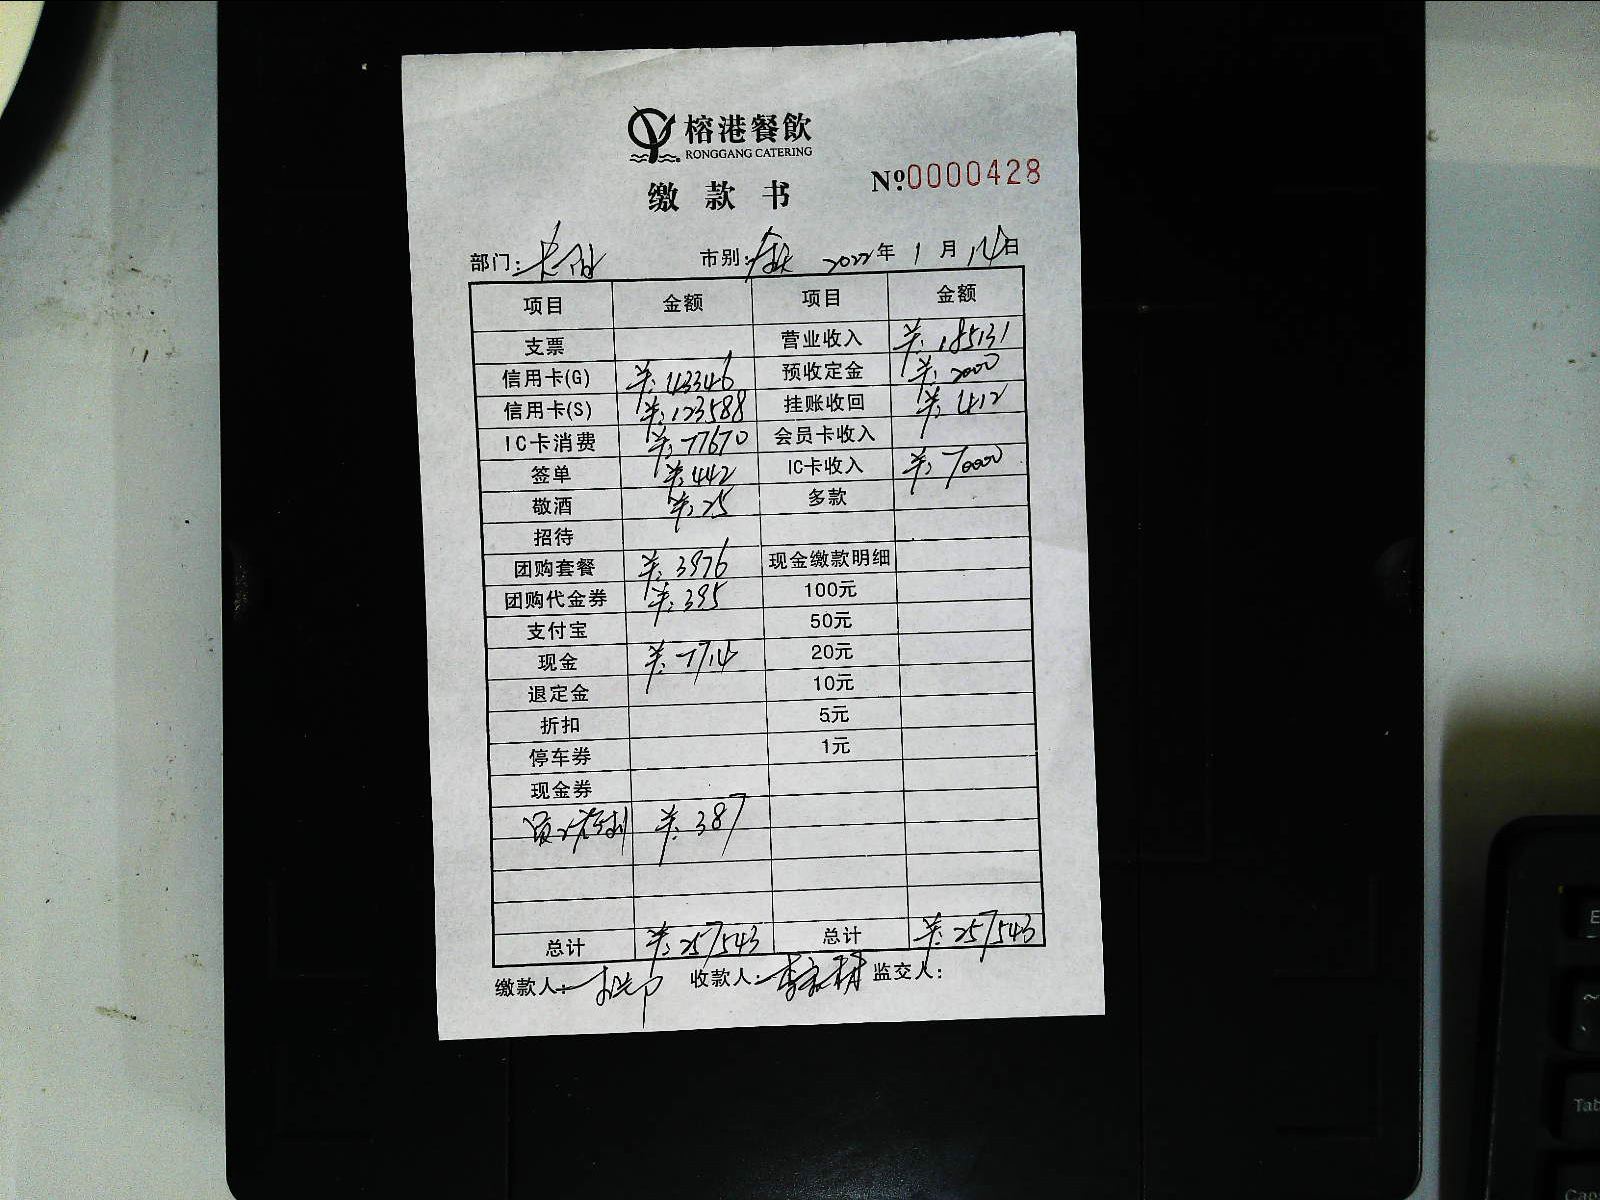 榕港餐飲
RONGGANG CATERING
缴款书
Nº.0000428
部门: 市别: 2022年 1月 14日
项目 金额 项目 金额
支票 营业收入 ¥:185131
信用卡(G) ¥:43346 预收定金 ¥:2000
信用卡(S) ¥:123588 挂账收回 ¥:412
IC卡消费 ¥:77670 会员卡收入
签单 ¥:442 IC卡收入 ¥:70000
敬酒 ¥:25 多款
招待
团购套餐 ¥:3976 现金缴款明细
团购代金券 ¥:395 100元
支付宝 50元
现金 ¥:7714 20元
退定金 10元
折扣 5元
停车券 1元
现金券
¥:387
总计 ¥:257543 总计 ¥:257543
缴款人: 收款人: 监交人:
E
~
Tab
Cap